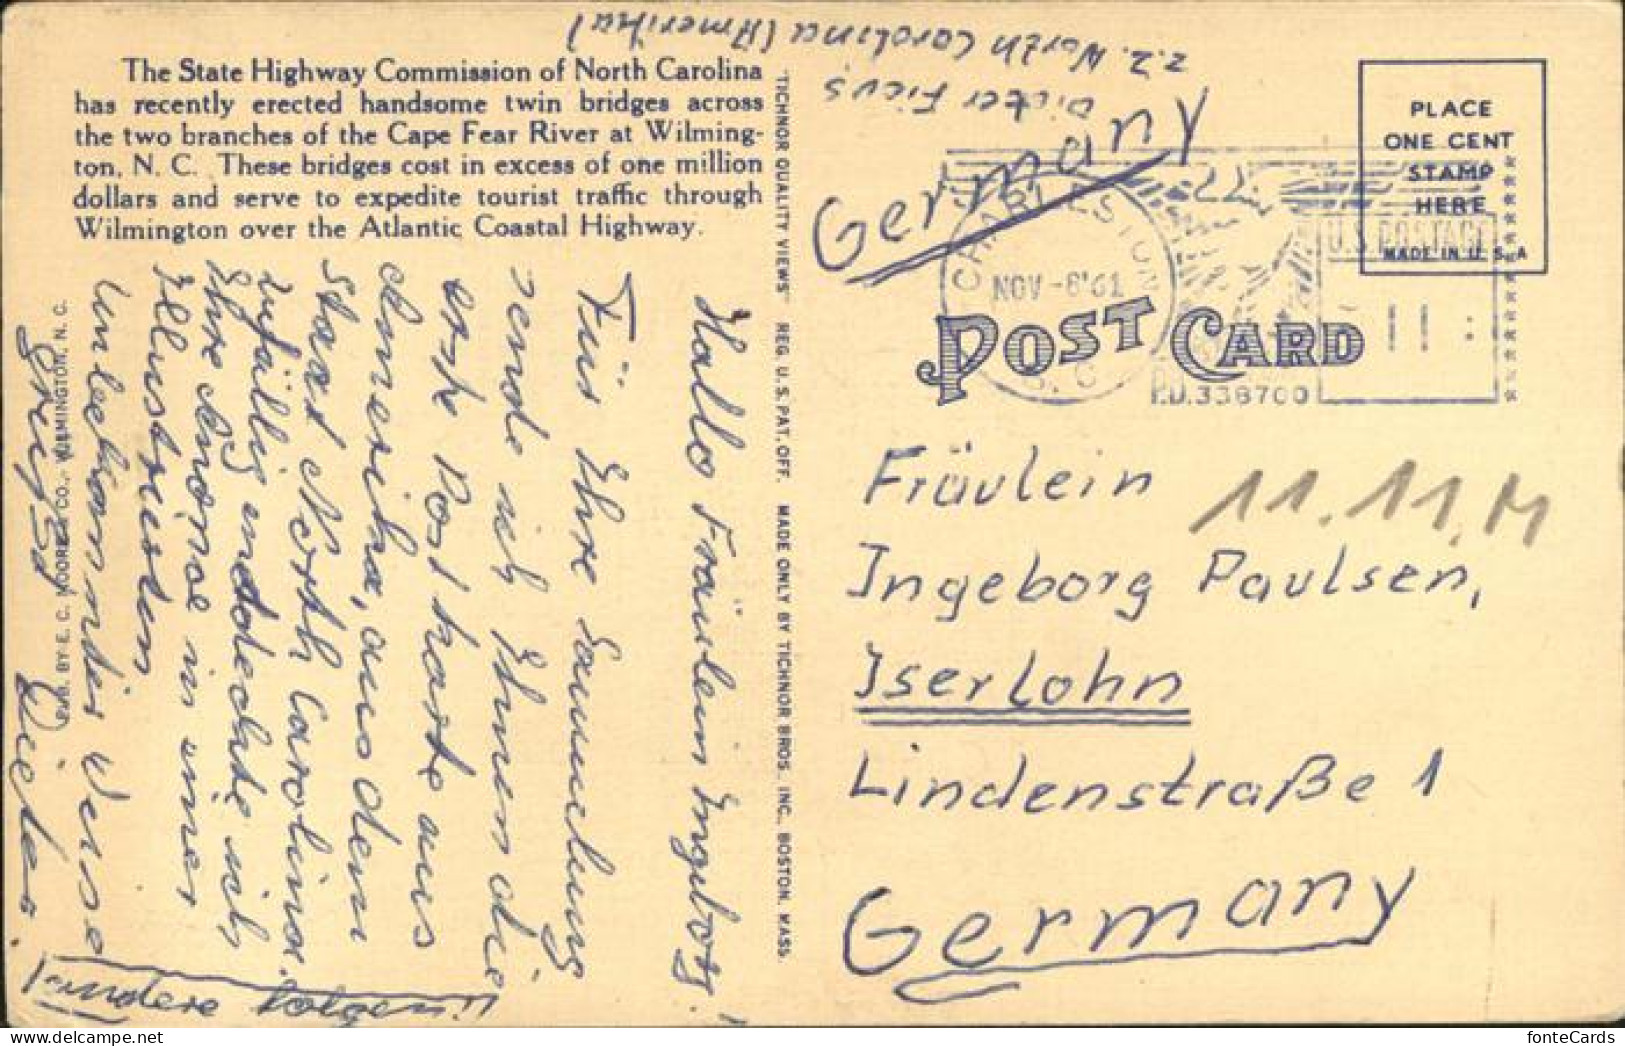 The State Highway Commission of North Carolina
has recently erected handsome twin bridges across
the two branches of the Cape Fear River at Wilming-
ton, N. C. These bridges cost in excess of one million
dollars and serve to expedite tourist traffic through
Wilmington over the Atlantic Coastal Highway.
PUB. BY E. C. MOORE CO., WILMINGTON, N. C.
"TICHNOR QUALITY VIEWS" REG. U. S. PAT. OFF. MADE ONLY BY TICHNOR BROS. INC., BOSTON, MASS.
Hallo Fräulein Ingeborg!
Für Ihre Sammlung
sende ich Ihnen die
erste Postkarte aus
Amerika, aus dem
Staat North Carolina.
Zufällig entdeckte ich
Ihre Annonce in einer
Illustrierten
Unbekannter Weise
Dieter
(andere folgen!!)
z.Z. North Carolina (Amerika)
Dieter
Germany
CHARLESTON
NOV -8 '61
S. C.
U.S. POSTAGE
P.D. 338700
PLACE
ONE CENT
STAMP
HERE
MADE IN U. S. A
POST CARD
Fräulein
11.11.M
Ingeborg Paulsen,
Iserlohn
Lindenstraße 1
Germany
fonteCards